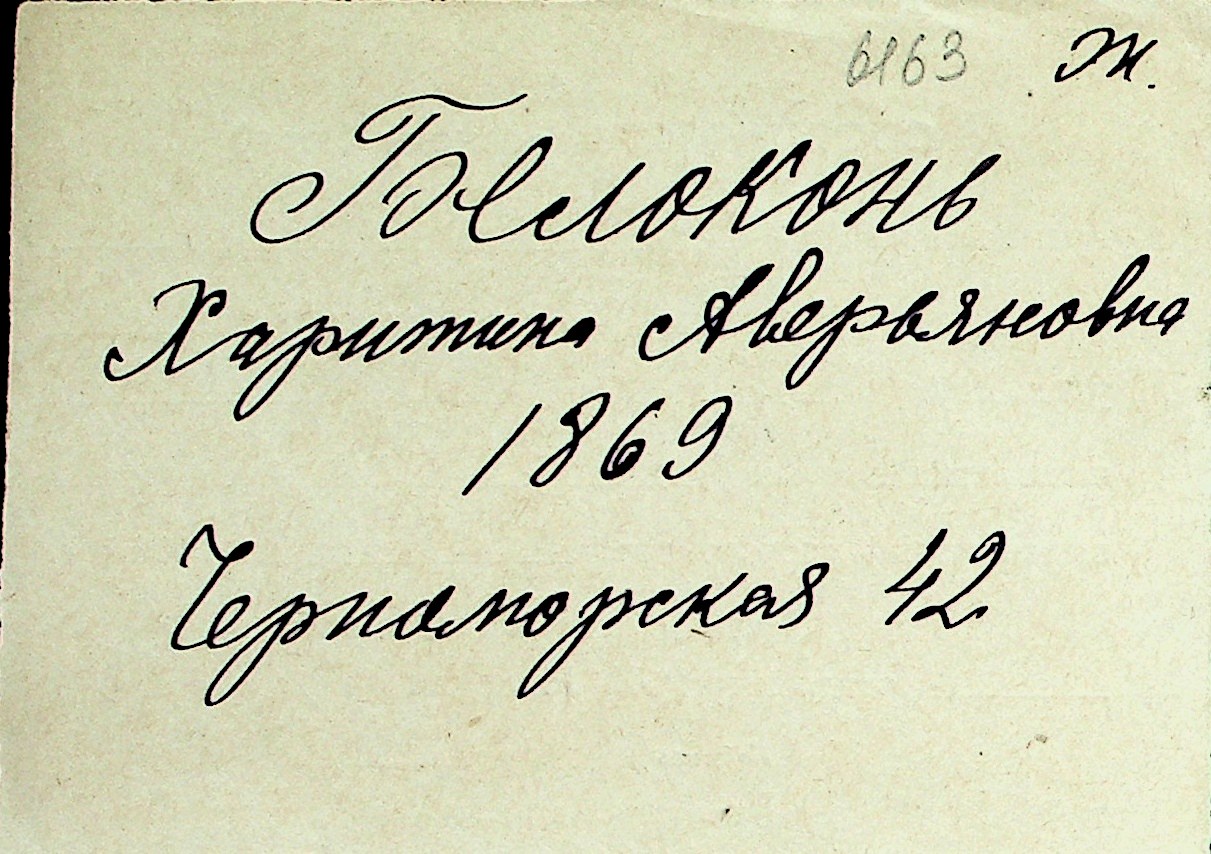 6163 Ж.
Белоконь
Харитина Аверьяновна
1869
Черноморская 42